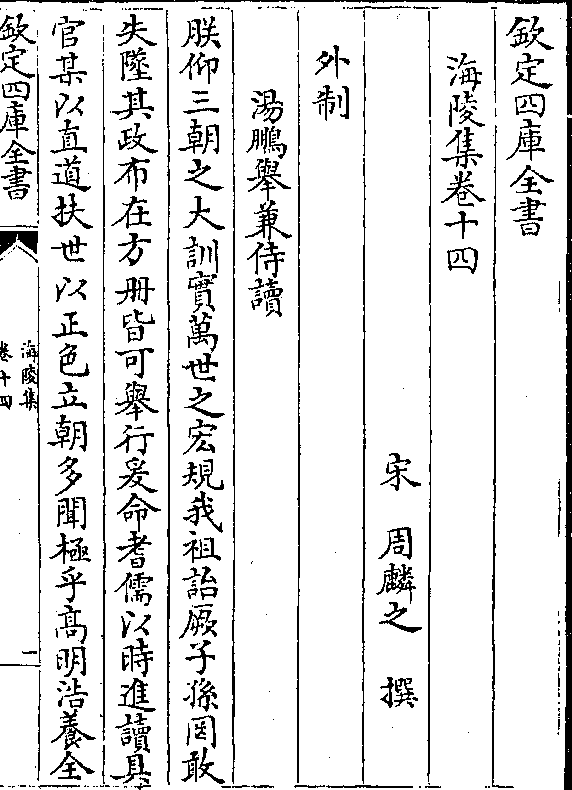 欽定四庫全書
海陵集卷十四
宋 周麟之 撰
外制
湯鵬舉兼侍讀
朕仰三朝之大訓實萬世之宏規我祖詒厥子孫罔敢
失墜其政布在方册皆可舉行爰命耆儒以時進讀具
官某以直道扶世以正色立朝多聞極乎髙明浩養全
欽定四庫全書
海陵集
卷十四
一